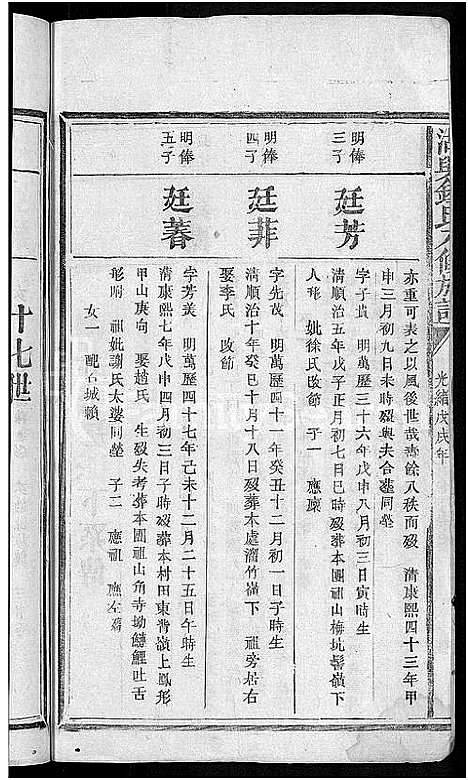 光緒戊戌年
亦重可表之以風後世哉壽餘八秩而歿 清康熙四十三年甲
申三月初九日未時歿與夫合塟同塋
明俸
三子
廷芳
字子 明萬歷三十六年戊申八月初三日寅時生
清順治五年戊子正月初七日巳時歿葬本圖祖山梅坑髻嶺下
人形 妣徐氏改節 子一 應
明俸
四子
廷菲
字先 明萬歷四十一年癸丑十二月初一日子時生
清順治十年癸巳十月十八日歿葬本處溜竹嶺下 祖旁居右
娶李氏 改節
明俸
五子
廷萶
字芳美 明萬歷四十七年己未十二月二十五日午時生
清康熙七年戊申四月初三日子時歿葬本村田東背嶺上鳳形
甲山庚向 娶趙氏 生歿失考葬本圖祖山角寺坳 鯉吐舌
形附 祖妣謝氏太婆同塋 子二 應祖 應
女一 配石城賴
十七世